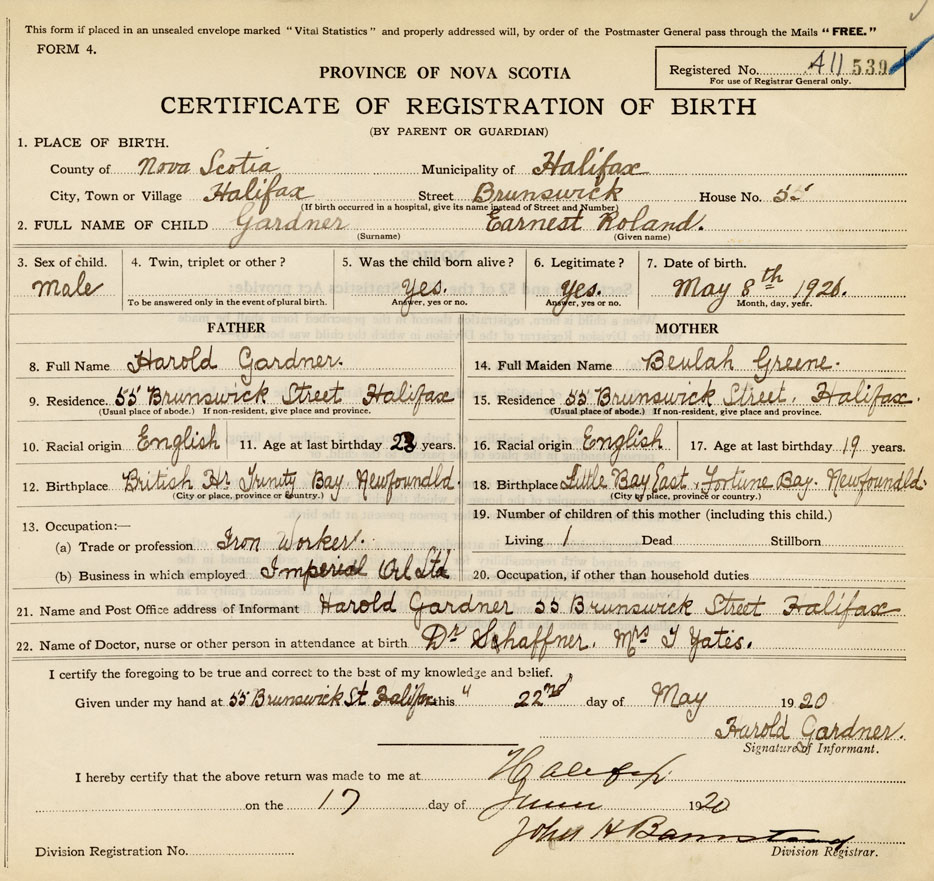 This form if placed in an unsealed envelope marked "Vital Statistics" and properly addressed will, by order of the Postmaster General pass through the Mails "FREE."
FORM 4.
Registered No. A11 539
For use of Registrar General only.
PROVINCE OF NOVA SCOTIA
CERTIFICATE OF REGISTRATION OF BIRTH
(BY PARENT OR GUARDIAN)
1. PLACE OF BIRTH.
County of Nova Scotia Municipality of Halifax
City, Town or Village Halifax Street Brunswick House No. 55
(If birth occurred in a hospital, give its name instead of Street and Number)
2. FULL NAME OF CHILD Gardner Earnest Roland.
(Surname) (Given name)
3. Sex of child. 4. Twin, triplet or other? 5. Was the child born alive? 6. Legitimate? 7. Date of birth.
Male Yes. Yes. May 8th 1920.
To be answered only in the event of plural birth. Answer, yes or no. Answer, yes or no. Month, day, year.
FATHER MOTHER
8. Full Name Harold Gardner. 14. Full Maiden Name Beulah Greene.
9. Residence. 55 Brunswick Street Halifax 15. Residence 55 Brunswick Street. Halifax.
(Usual place of abode.) If non-resident, give place and province. (Usual place of abode.) If non-resident, give place and province.
10. Racial origin English 11. Age at last birthday 23 years. 16. Racial origin English. 17. Age at last birthday 19 years.
12. Birthplace British Hr Trinity Bay. Newfoundld. 18. Birthplace Little Bay East. Fortune Bay. Newfoundld.
(City or place, province or country.) (City or place, province or country.)
13. Occupation:— 19. Number of children of this mother (including this child.)
(a) Trade or profession Iron Worker. Living 1 Dead Stillborn
(b) Business in which employed Imperial Oil Ltd 20. Occupation, if other than household duties
21. Name and Post Office address of Informant Harold Gardner 55 Brunswick Street Halifax
22. Name of Doctor, nurse or other person in attendance at birth Dr Schaffner. Mrs T Yates.
I certify the foregoing to be true and correct to the best of my knowledge and belief.
Given under my hand at 55 Brunswick St. Halifax this 22nd day of May 1920
Harold Gardner.
Signature of Informant.
I hereby certify that the above return was made to me at Halifax
on the 17 day of June 1920
John H
Division Registration No. Division Registrar.